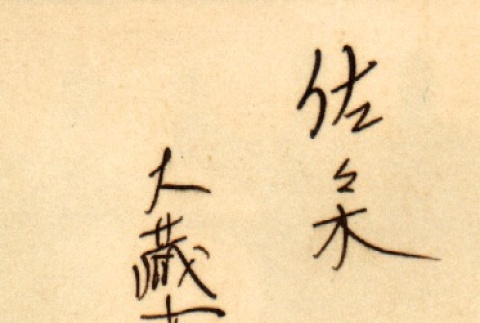 佐々木
大藏